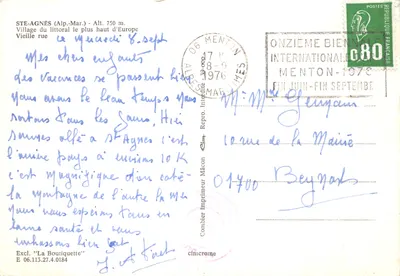 STE-AGNÈS (Alp.-Mar.) - Alt. 750 m.
Village du littoral le plus haut d'Europe
Vieille rue
ce mercredi 8 sept
Mes chers enfants
les vacances se passent bien
nous avons le beau temps nous
sortons tous les jours. Hier
sommes allé a St Agnes c'est
pays a environ 10 K
c'est magnifique d'un coté
la montagne de l'autre la mer
nous nous espérons tous en
bonne santé et vous
embrassons bien fort
Excl. "La Bouriquette"
E 06.113.27.4.0184
cimcrome
Combier Imprimeur Mâcon
06 MENTON
17 H
8-9
1976
ALPES MARITIMES
ONZIEME BIENNALE
INTERNATIONALE
MENTON-1976
JUIN-FIN SEPTEMBRE
0,80
10 rue de la Mairie
01700 Beynost